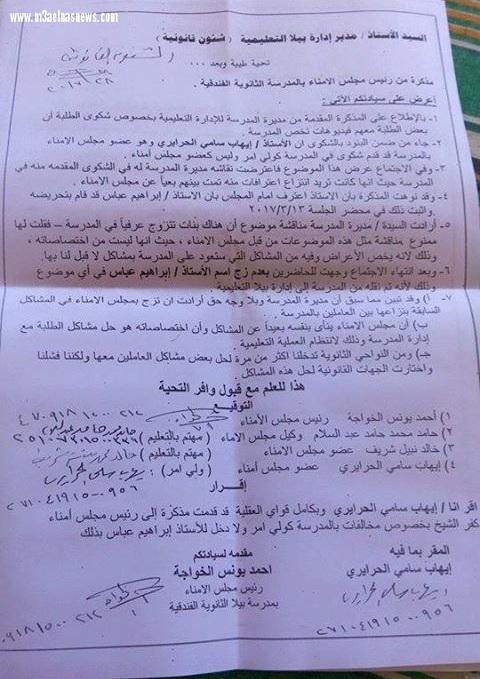 www.m3aelnas.com
السيد الأستاذ / مدير إدارة بيلا التعليمية ( شئون قانونية )
تحية طيبة وبعد ...
مذكرة من رئيس مجلس الامناء بالمدرسة الثانوية الفندقية .
أعرض على سيادتكم الآتي :
١- بالإطلاع على المذكرة المقدمة من مديرة المدرسة للإدارة التعليمية بخصوص شكوى الطلبة أن
بعض الطلبة معهم فيديوهات تخص المدرسة .
٢- جاء من ضمن البنود بالشكوى ان الأستاذ / إيهاب سامي الحرايري وهو عضو مجلس الامناء
بالمدرسة قد قدم شكوى في المدرسة كولي امر وليس كعضو مجلس أمناء .
٣- وفى الاجتماع عرض هذا الموضوع فاعترضت نقاشه مديرة المدرسة له في الشكوى المقدمه منه في
المدرسة حيث انها كانت تريد انتزاع اعترافات منه تمت بينهم بعيا عن مجلس الامناء .
٤- وقد نوهت المذكرة بان الاستاذ اعترف امام المجلس بان الاستاذ / إبراهيم عباس قد قام بتحريضه
واثبت ذلك في محضر الجلسة ٢٠١٧/٣/١٣
٥- أرادت السيدة / مديرة المدرسة مناقشة موضوع أن هناك بنات تتزوج عرفياً في المدرسة – فقلت لها
ممنوع مناقشة مثل هذه الموضوعات من قبل مجلس الامناء ، حيث انها ليست من اختصاصاته ،
وذلك لانه يخص الأعراض وفيه من المشاكل التي ستعود على المدرسة بمشاكل لا قبل لنا بها.
٦- وبعد انتهاء الاجتماع وجهت للحاضرين بعدم زج اسم الأستاذ / إبراهيم عباس في أي موضوع
وذلك لأنه تم نقله من المدرسة إلى إدارة بيلا التعليمية
٧- أ) وقد تبين مما سبق أن مديرة المدرسة وبلا وجه حق أرادت ان تزج بمجلس الامناء في المشاكل
السابقة بنزاعها بين العاملين بالمدرسة .
ب) أن مجلس الامناء ينأى بنفسه بعيداً عن المشاكل وأن اختصاصاته هو حل مشاكل الطلبة مع
إدارة المدرسة وذلك لانتظام العملية التعليمية .
جـ) ومن النواحي الثانوية تدخلنا اكثر من مرة لحل بعض مشاكل العاملين معها ولكننا فشلنا
واختارت الجهات القانونية لحل هذه المشاكل .
هذا للعلم مع قبول وافر التحية
التوقيع
١) أحمد يونس الخواجة رئيس مجلس الأمناء
٢) حامد محمد حامد عبد السلام وكيل مجلس الامناء ( مهتم بالتعليم )
٣) خالد نبيل شريف عضو مجلس الامناء ( مهتم بالتعليم )
٤) إيهاب سامي الحرايري عضو مجلس أمناء ( ولي امر ) :
إقرار
اقر انا / إيهاب سامي الحرايري وبكامل قواي العقلية قد قدمت مذكرة إلى رئيس مجلس أمناء
كفر الشيخ بخصوص مخالفات بالمدرسة كولي امر ولا دخل للأستاذ إبراهيم عباس بذلك
المقر بما فيه
إيهاب سامي الحرايري
إيهاب سامي الحرايري
٢٧١٠٤١٩١٥٠٠٩٥٦
مقدمه لسيادتكم
احمد يونس الخواجة
رئيس مجلس الامناء
بمدرسة بيلا الثانوية الفندقية